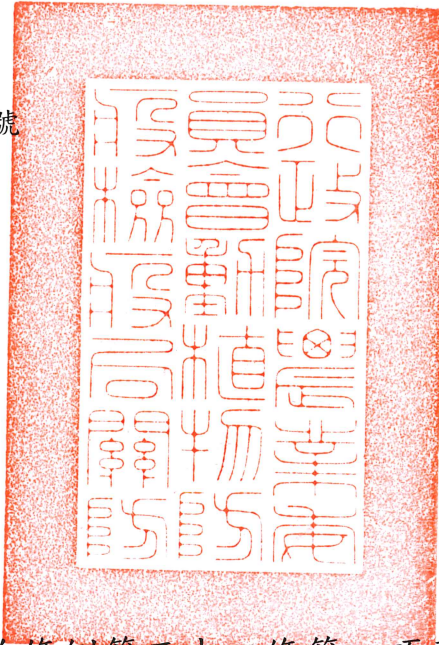 號
行政院農業委
員會動植物防
疫檢疫局關防